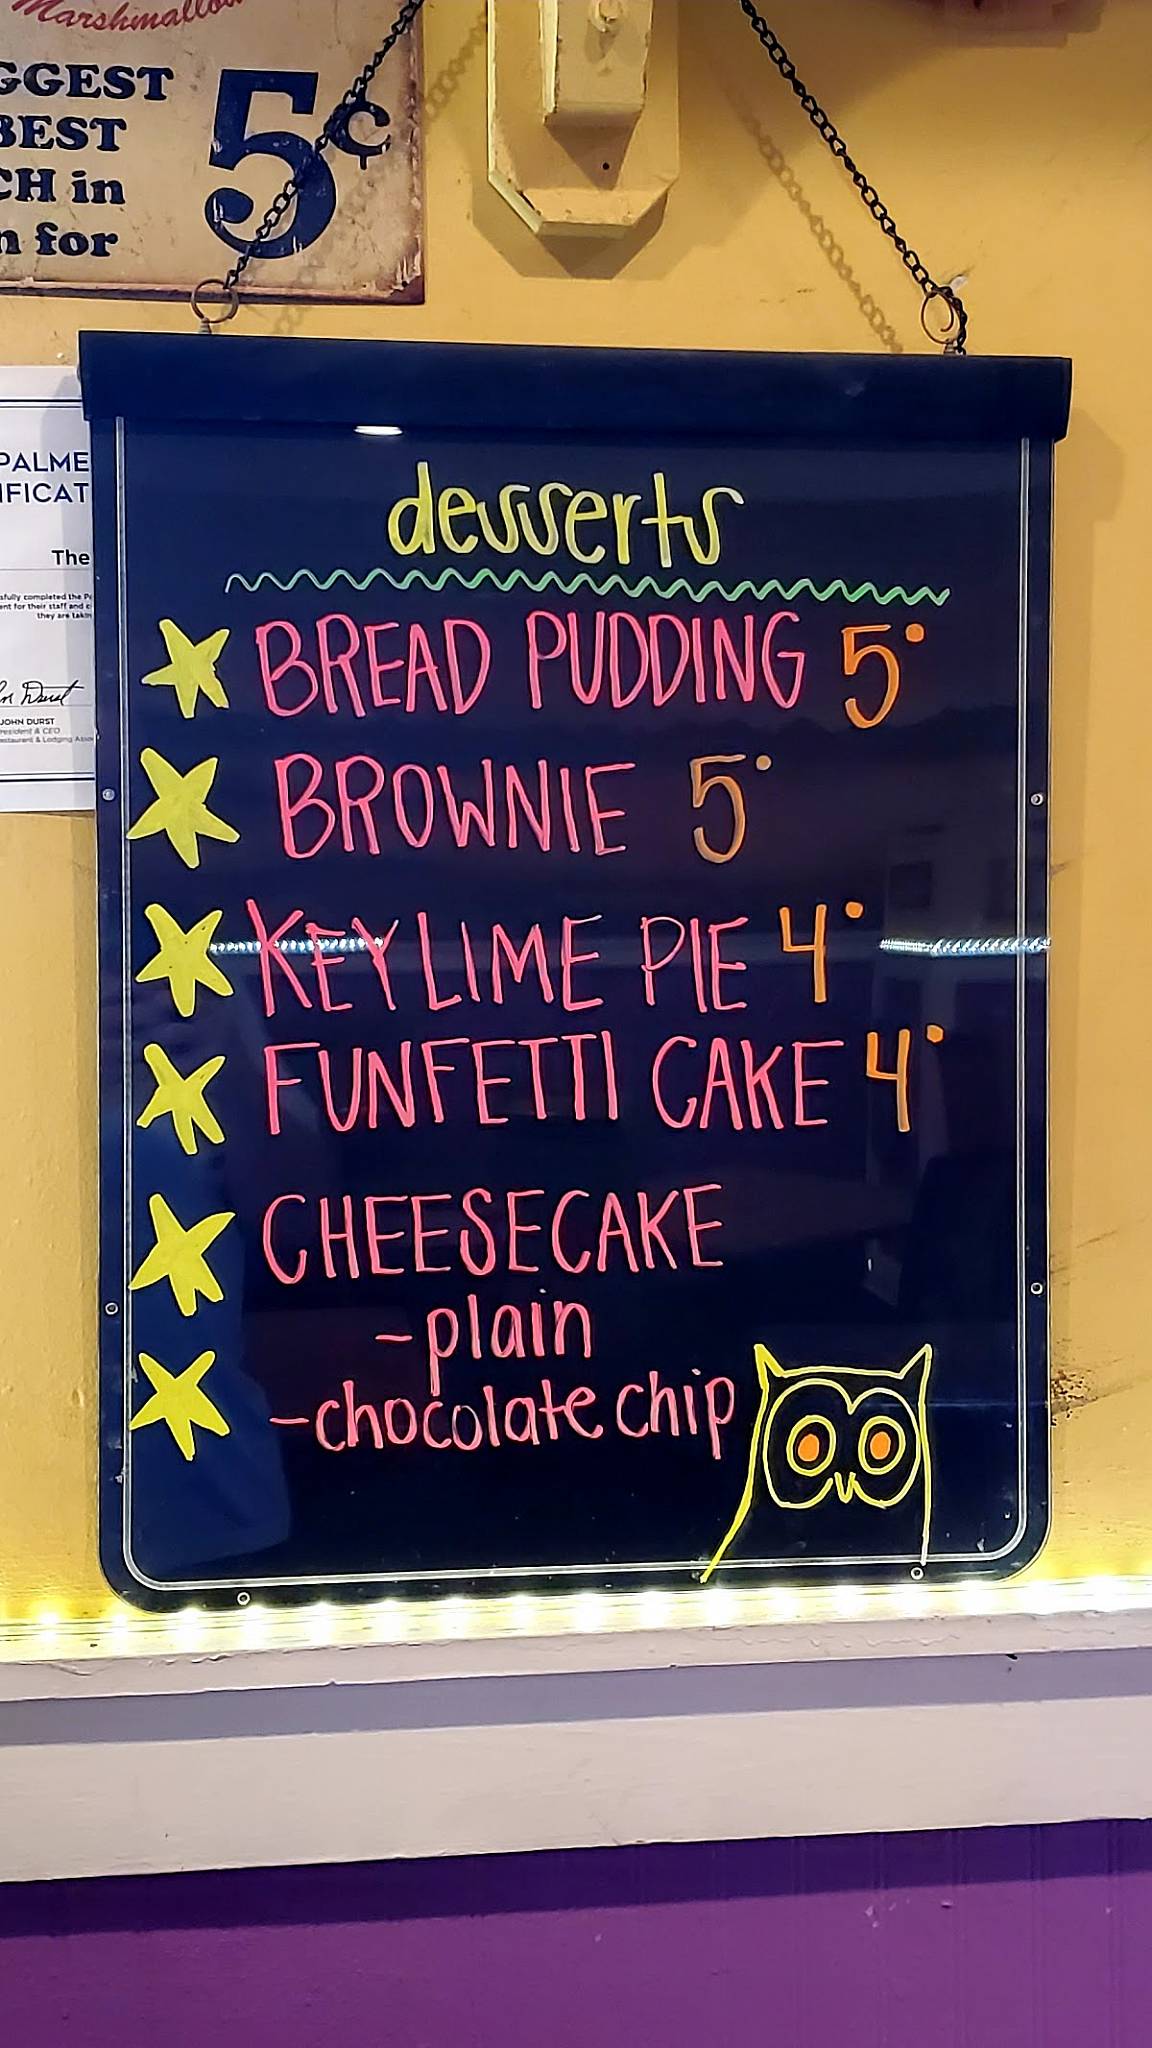 Marshmallow
GGEST
BEST
CH in
n for
5¢
PALME
IFICAT
The
JOHN DURST
desserts
BREAD PUDDING 5°
BROWNIE 5°
KEY LIME PIE 4°
FUNFETTI CAKE 4°
CHEESECAKE
-plain
-chocolate chip